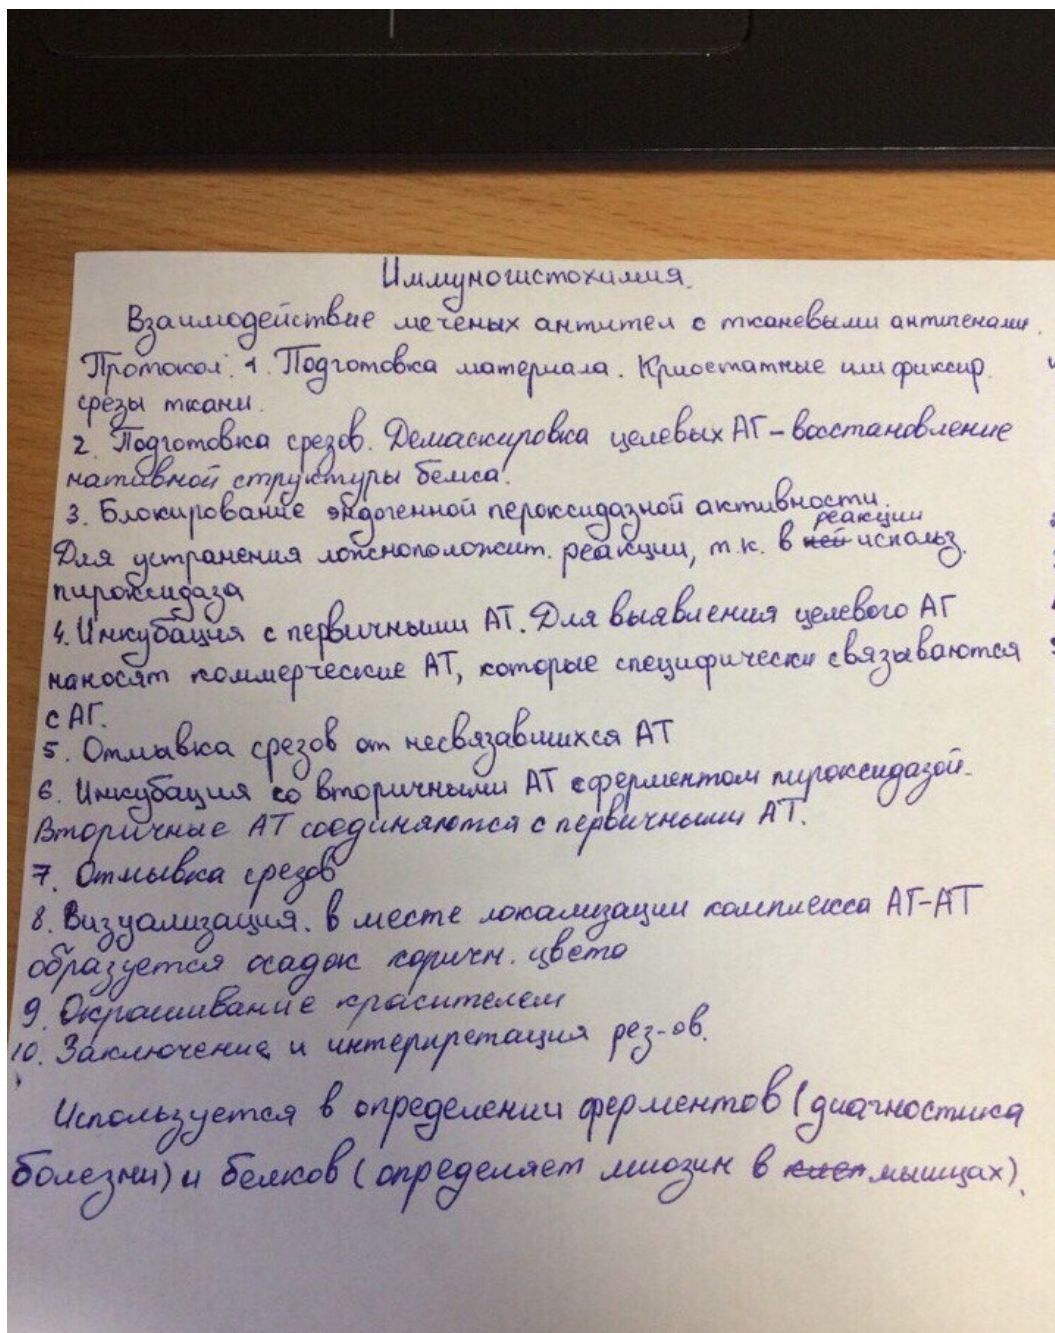 Иммуногистохимия.
Взаимодействие меченых антител с тканевыми антигенами.
Протокол: 1. Подготовка материала. Криостатные или фиксир.
срезы ткани.
2. Подготовка срезов. Демаскировка целевых АГ – восстановление
нативной структуры белка.
3. Блокирование эндогенной пероксидазной активности.
реакции
Для устранения ложноположит. реакции, т.к. в ней использ.
пироксидаза
4. Инкубация с первичными АТ. Для выявления целевого АГ
наносят коммерческие АТ, которые специфически связываются
с АГ.
5. Отмывка срезов от несвязавшихся АТ
6. Инкубация со вторичными АТ с ферментом пироксидазой.
Вторичные АТ соединяются с первичными АТ.
7. Отмывка срезов
8. Визуализация. В месте локализации комплекса АГ-АТ
образуется осадок коричн. цвета
9. Окрашивание красителем
10. Заключение и интерпретация рез-ов.
Используется в определении ферментов (диагностика
болезни) и белков (определяет миозин в мышцах).